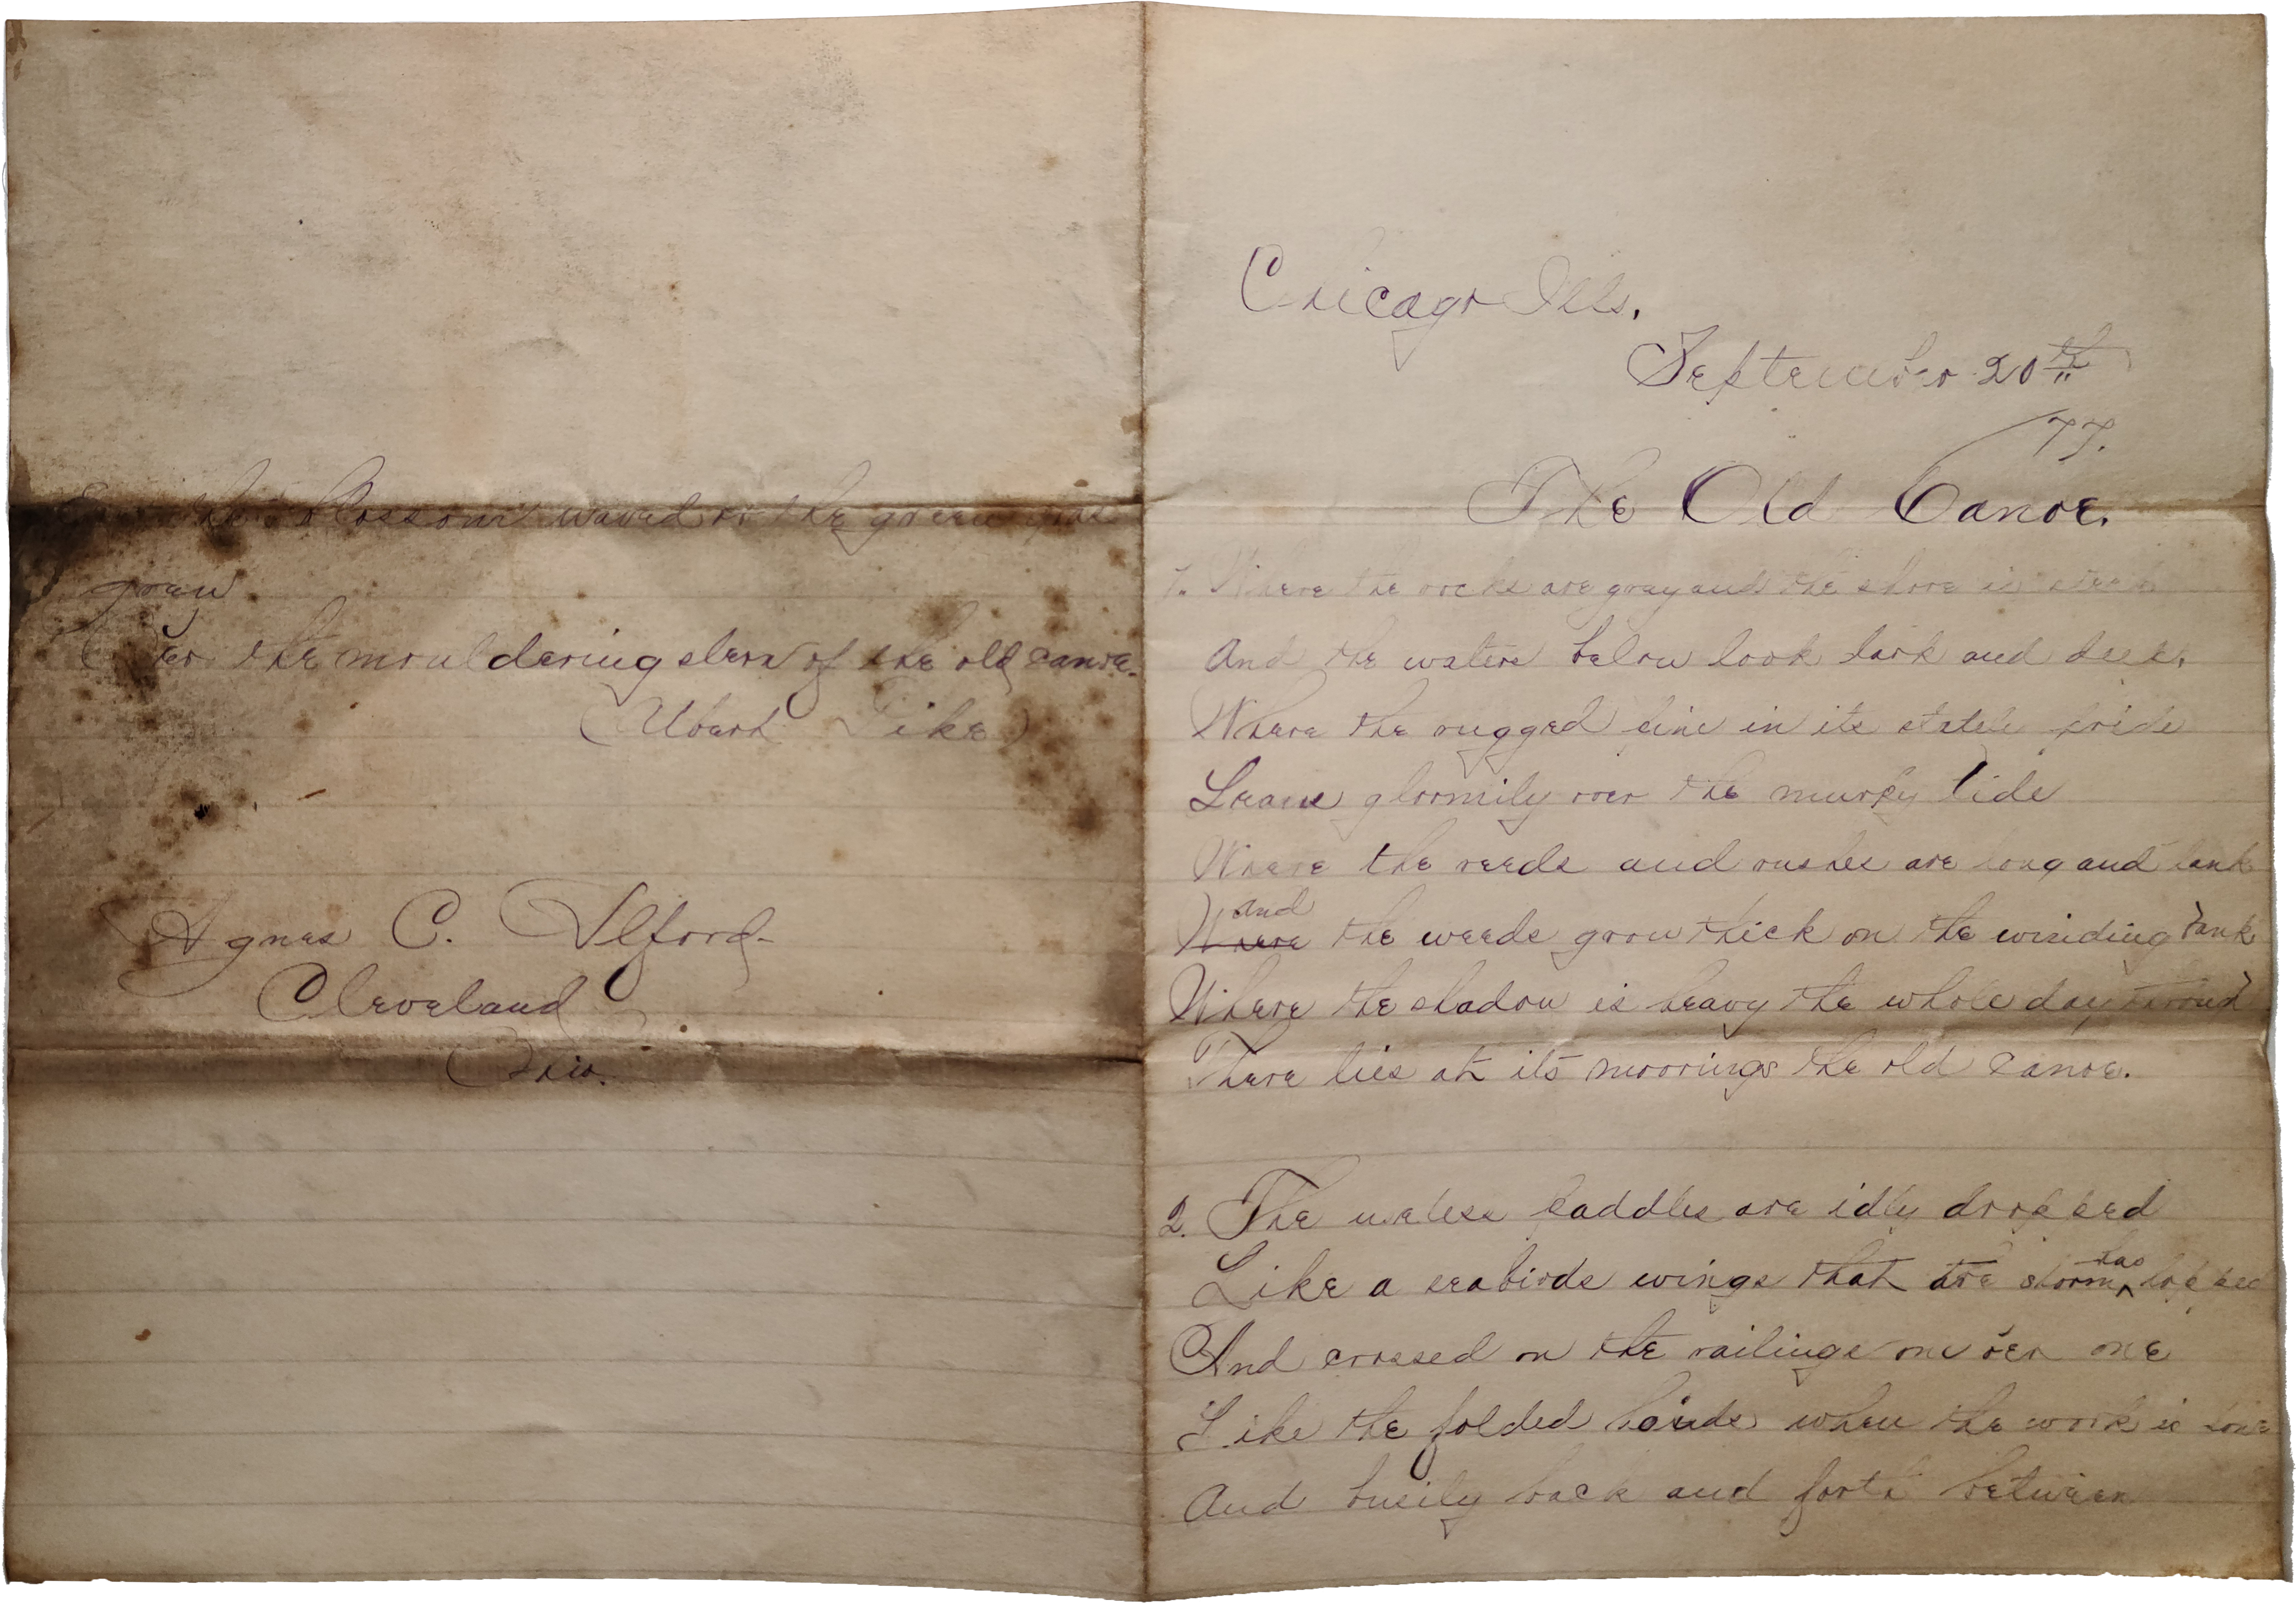 blossom waved or the green
grew
Oer the mouldering stern of the old canoe.
(Albert Pike)
Agnes C. Ilford
Cleveland
Ohio.
Chicago Ills.
September 20th
77.
The Old Canoe.
1. Where the rocks are gray and the shore is steep
And the waters below look dark and deep,
Where the rugged pine in its stately pride
Leans gloomily over the murky tide
Where the reeds and rushes are long and lank
and
Where the weeds grow thick on the winding bank
Where the shadow is heavy the whole day through
There lies at its moorings the old canoe.
2. The useless paddles are idly dropped
has
Like a seabirds wings that the storm ^ lopped
And crossed on the railings one oer one
Like the folded hands when the work is done
And busily back and forth between